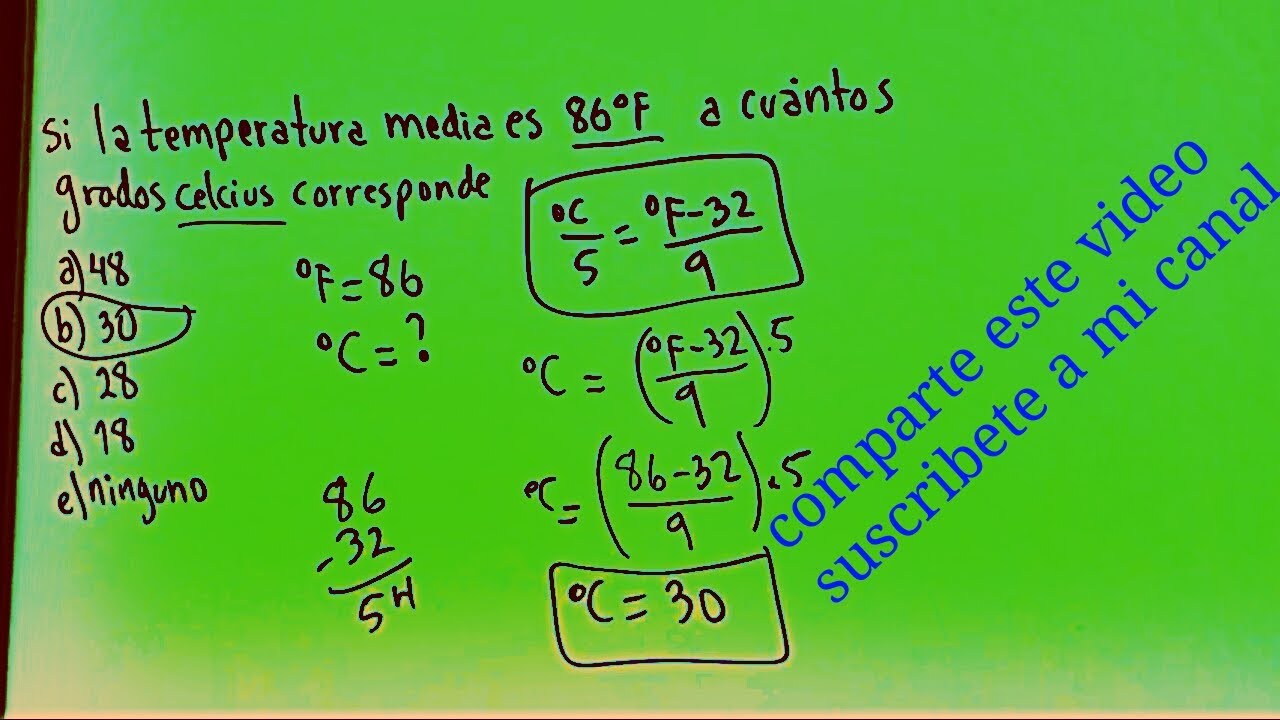 si la temperatura media es 86°F a cuántos
grados celcius corresponde
a) 48
b) 30
c) 28
d) 18
e) ninguno
°F = 86
°C = ?
86
- 32
54
°C/5 = °F-32/9
°C = (°F-32/9).5
°C = (86-32/9).5
°C = 30
comparte este video
suscribete a mi canal